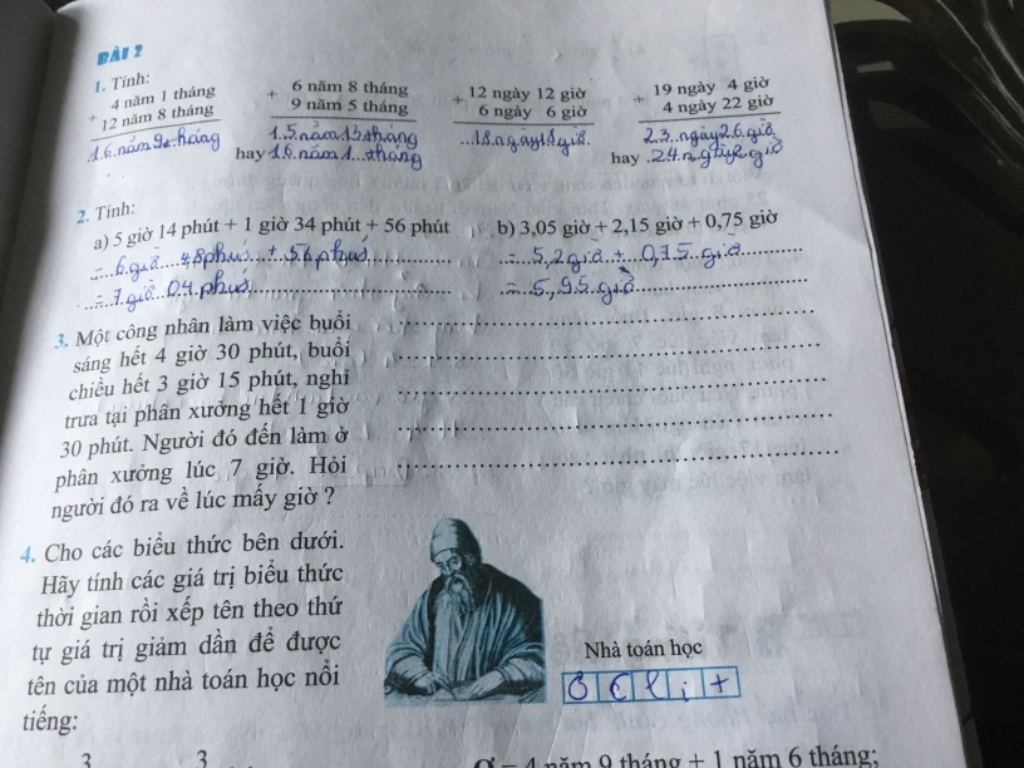 BÀI 2
1. Tính:
4 năm 1 tháng
+ 12 năm 8 tháng
16 năm 9 tháng
6 năm 8 tháng
+ 9 năm 5 tháng
15 năm 13 tháng
hay 16 năm 1 tháng
12 ngày 12 giờ
+ 6 ngày 6 giờ
18 ngày 18 giờ
19 ngày 4 giờ
+ 4 ngày 22 giờ
23 ngày 26 giờ
hay 24 ngày 2 giờ
2. Tính:
a) 5 giờ 14 phút + 1 giờ 34 phút + 56 phút
= 6 giờ 48 phút + 56 phút
= 7 giờ 04 phút
b) 3,05 giờ + 2,15 giờ + 0,75 giờ
= 5,2 giờ + 0,75 giờ
= 5,95 giờ
3. Một công nhân làm việc buổi
sáng hết 4 giờ 30 phút, buổi
chiều hết 3 giờ 15 phút, nghỉ
trưa tại phân xưởng hết 1 giờ
30 phút. Người đó đến làm ở
phân xưởng lúc 7 giờ. Hỏi
người đó ra về lúc mấy giờ ?
4. Cho các biểu thức bên dưới.
Hãy tính các giá trị biểu thức
thời gian rồi xếp tên theo thứ
tự giá trị giảm dần để được
tên của một nhà toán học nổi
tiếng:
Nhà toán học
Ơ C l i t
3 3
Ơ = 4 năm 9 tháng + 1 năm 6 tháng;